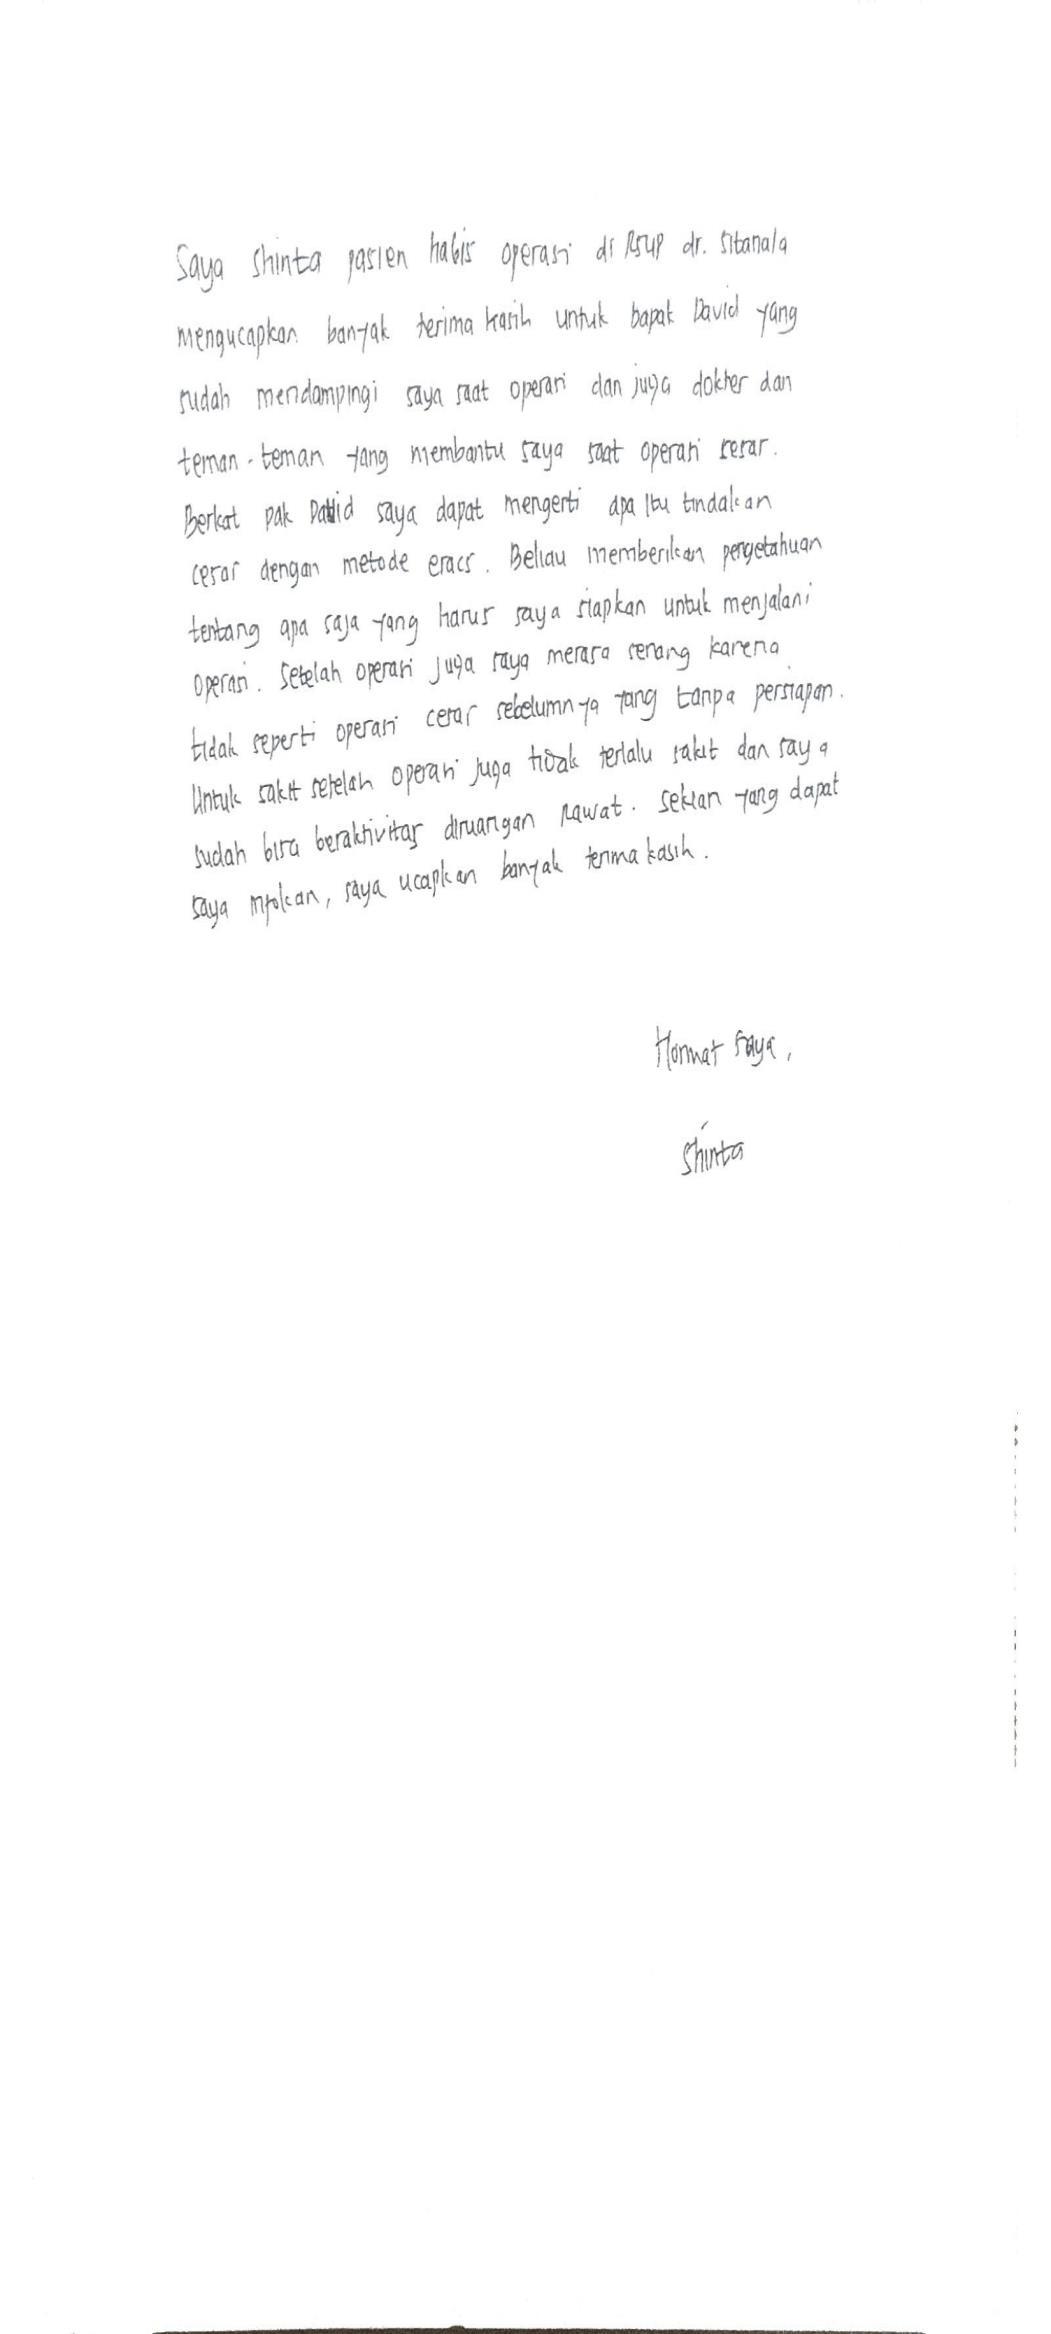 Saya Shinta pasien habis operasi di RSUP dr. Sitanala
mengucapkan banyak terima kasih untuk bapak David yang
sudah mendampingi saya saat operasi dan juga dokter dan
teman-teman yang membantu saya saat operasi sesar.
Berkat pak David saya dapat mengerti apa itu tindakan
cesar dengan metode eracs. Beliau memberikan pengetahuan
tentang apa saja yang harus saya siapkan untuk menjalani
operasi. Setelah operasi juga saya merasa senang karena
tidak seperti operasi cesar sebelumnya yang tanpa persiapan.
Untuk sakit setelah operasi juga tidak terlalu sakit dan saya
sudah bisa beraktivitas diruangan rawat. Sekian yang dapat
saya , saya ucapkan banyak terima kasih.
Hormat saya,
Shinta